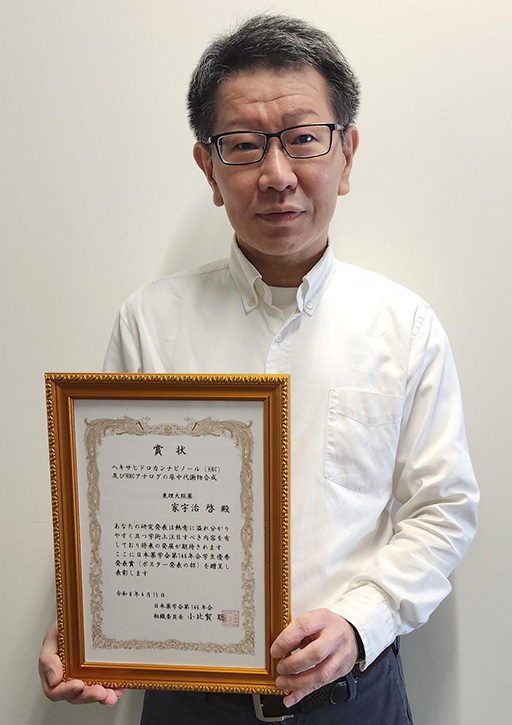 賞状
ヘキサヒドロカンナビノール（HHC）
及びHHCアナログの尿中代謝物合成
東理大院薬
家宇治 啓 殿
あなたの研究発表は熱意に溢れ分かり
やすく且つ学術上注目すべき内容を有
しており将来の発展が期待されます
ここに日本薬学会第146年会学生優秀
発表賞（ポスター発表の部）を贈呈し
表彰します
令和8年4月15日
日本薬学会第146年会
組織委員長 小比賀 聡